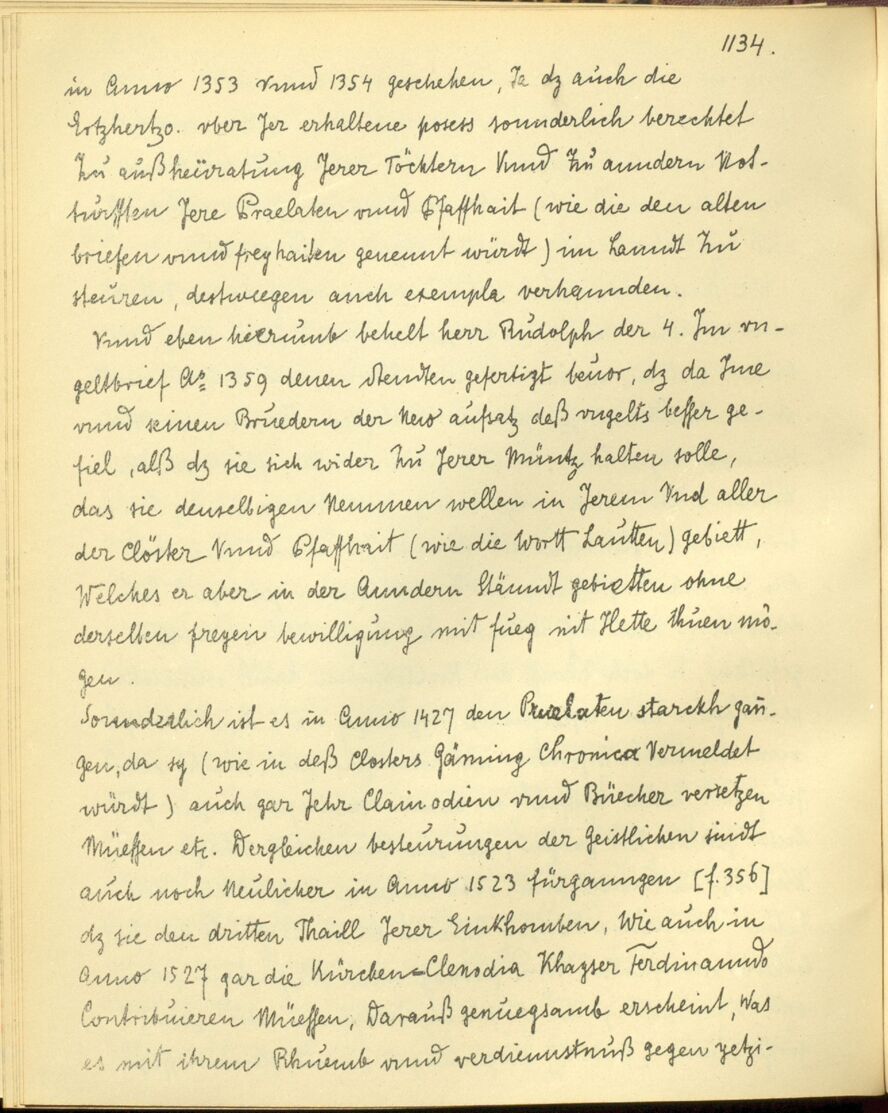 1134.
in Anno 1353 vnnd 1354 geschehen, Ja dz auch die
Ertzhertzo. vber Jer erhaltene posess sonnderlich berechtet
Zu außheüratung Jerer Töchtern Vnnd Zu anndern Not-
turfften Jere Praelaten vnnd Pfaffhait (wie die den alten
briefen vnnd freyhaiten genennt würdt) im Lanndt Zu
steuren, destwegen auch exempla verhannden.
Vnnd eben hierumb behelt herr Rudolph der 4. Im vn-
geltbrief Ao 1359 denen Stendten gefertigt beuor, dz da Ime
vnnd seinen Bruedern der New aufsatz deß vngelts besser ge-
fiel, alß dz sie sich wider Zu Jerer Müntz halten solle,
das sie denselbigen Nemmen wellen in Jerem Vnd aller
der Clöster Vnnd Pfaffhait (wie die Wortt Lautten) gebiett,
Welches er aber in der Anndern Stänndt gebietten ohne
derselben freyen bewilligung mit fueg nit Hette thuen mö-
gen.
Sonnderlich ist es in Anno 1427 den Praelaten starckh gan-
gen, da sy (wie in deß Closters Gäming Chronica Vermeldet
würdt) auch gar Jehr Clainodien vnnd Büecher versetzen
Müessen etc. Dergleichen besteurungen der Geistlichen sindt
auch noch Neulicher in Anno 1523 fürganngen [f. 356]
dz sie den dritten Thaill Jerer Einkhomben, Wie auch in
Anno 1527 gar die Kürchen-Clenodia Khayser Ferdinanndo
Contribuieren Müessen, Darauß genuegsamb erscheint, Was
es mit ihrem Rhuemb vnnd verdiennstnuß gegen yetzi-